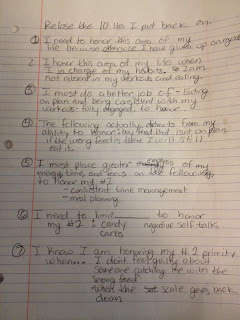 Relose the 10 lbs I put back on
① I need to honor this area of my
life because otherwise I have given up on myself
2. I honor this area of my life when
I in charge of my habits. I am
not absent in my workouts and eating.
③ I must do a better job of - Eating
on plan and being consistent with my
workouts - fully engaged, to honor
④ The following actually detracts from my
ability to honor: any food that isn't on plan
if the wrong food is there I will still
eat it.
⑤ I must place greater emphasis of my
energy, time, and focus on the following
to honor my #2
- consistent time management
- meal planning
⑥ I need to limit to honor
my #2: candy negative self talk
carbs
⑦ I know I am honoring my #2 priority
when... I don't feel guilty about
someone catching me with the
wrong food
- when the scale goes back
down